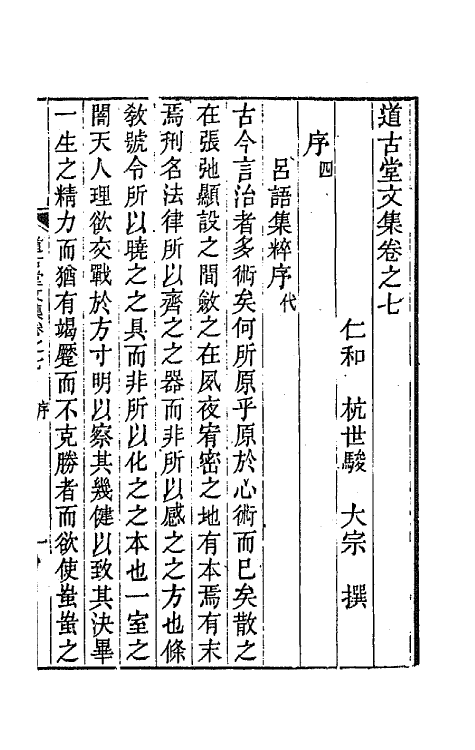 道古堂文集卷之七
仁和 杭世駿 大宗 撰
序四
呂語集粹序代
古今言治者多術矣何所原乎原於心術而已矣散之
在張弛顯設之間斂之在夙夜宥密之地有本焉有末
焉刑名法律所以齊之之器而非所以感之之方也條
敎號令所以曉之之具而非所以化之之本也一室之
闇天人理欲交戰於方寸明以察其幾健以致其決畢
一生之精力而猶有竭蹷而不克勝者而欲使蚩蚩之
道古堂文集卷之七 序 一